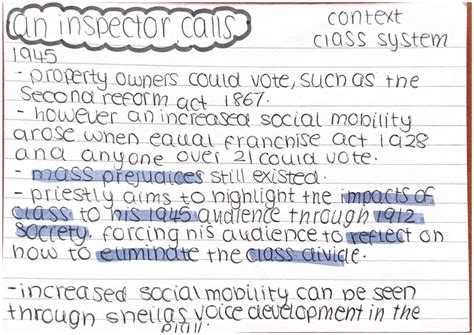 an inspector calls
context
class system
1945
- property owners could vote, such as the
second reform act 1867.
- however an increased social mobility
arose when equal franchise act 1928
and anyone over 21 could vote.
- mass prejudices still existed.
- priestly aims to highlight the impacts of
class to his 1945 audience through 1912
society. forcing his audience to reflect on
how to eliminate the class divide.
- increased social mobility can be seen
through sheilas voice development in the
play.